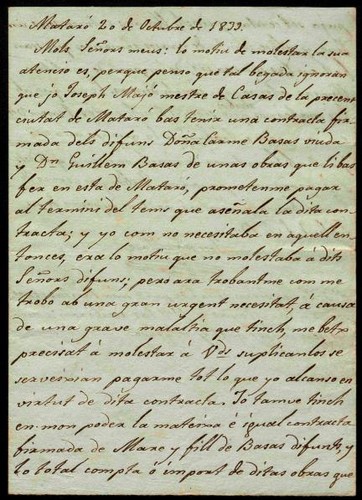 Mataró 20 de Octubre de 1833.
Mols Señors meus: lo motiu de molestar la sua
atencio es, perque penso que tal begada ignoran
que jo Joseph Majó mestre de Casas de la precent
ciutat de Mataró bas tenir una contracta fir-
mada dels difuns Doña Carme Basas viuda
y Dn Guillem Basas de unas obras que li bas
fer en esta de Mataró, prometenme pagar
al terminis del tems que aseñala la dita con-
tracta; y yo com no necesitaba en aquell en-
tonces, era lo motiu que no molestaba á dits
Señors difuns; pero ara trobantme com me
trobo ab una gran urgent necesitat, á causa
de una grave malaltia que tinch, me betx
precisat á molestar á Vds suplicanlos se
servesian pagarme tot lo que yo alcanso en
virtut de dita contracta. Jo tamve tinch
en mon poder la mateixa é igual contracta
firmada de Mare y fill de Basas difunts, y
lo total compta ó import de ditas obras que